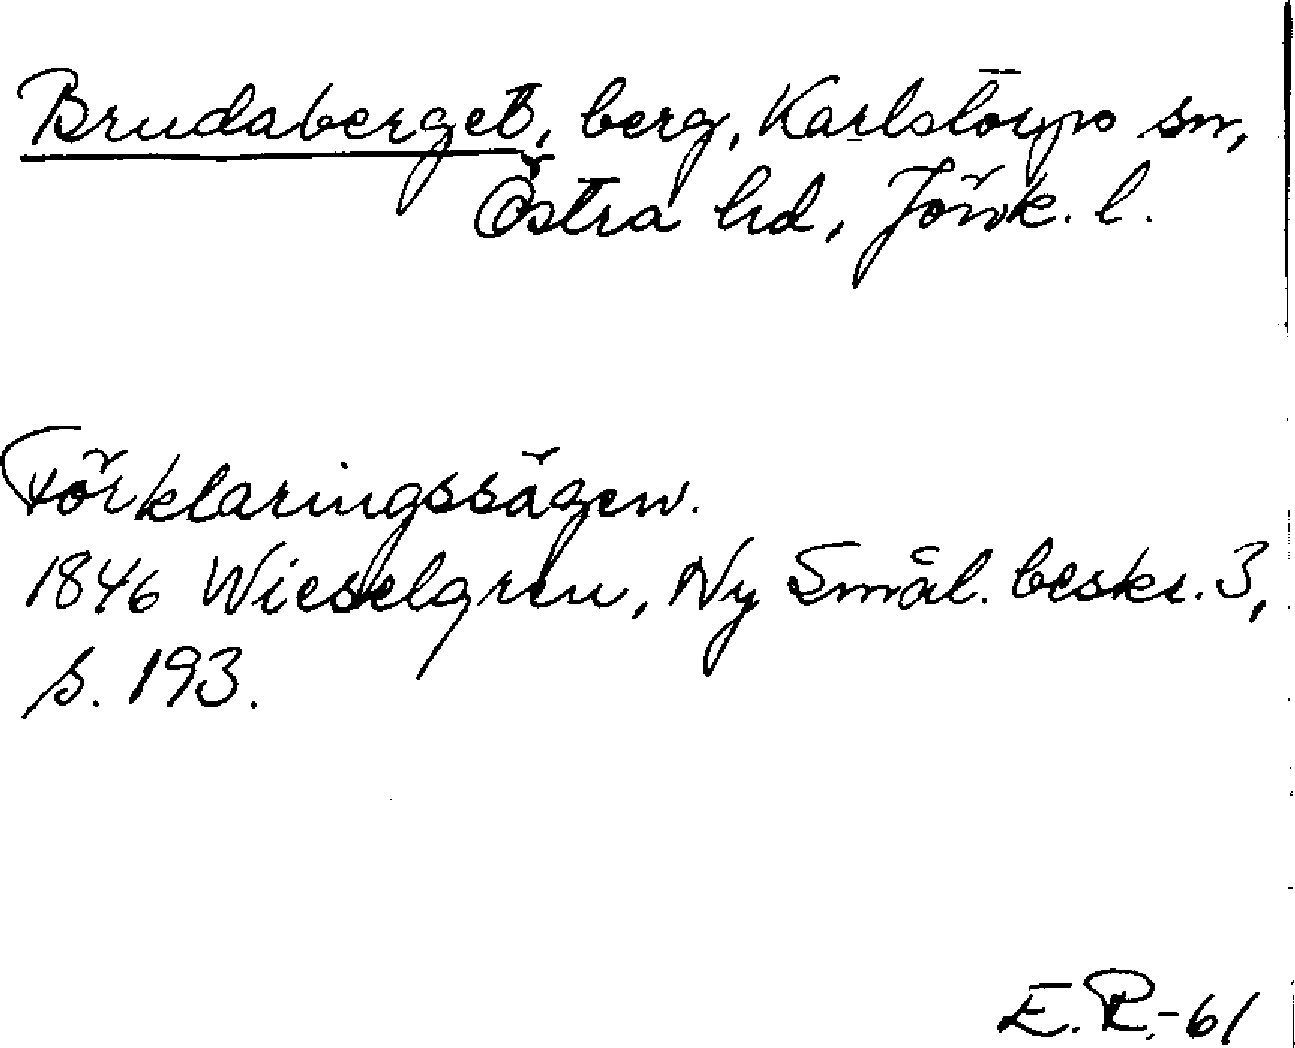 Brudaberget, berg, Karlstorps sn,
Östra hd, Jönk. l.
Förklaringssägen.
1846 Wieselgren, Ny Smål. beskr. 3,
s. 193.
E.R.-61